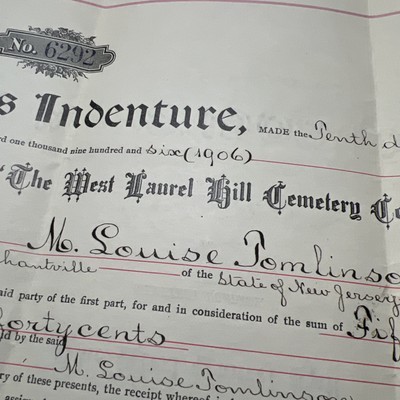 No. 6292
s Indenture, MADE the Tenth d
rd one thousand nine hundred and six (1906)
The West Laurel Hill Cemetery Co
M. Louise Tomlinso
chantville of the State of New Jersey
aid party of the first part, for and in consideration of the sum of Fif
Forty cents
d by the said M. Louise Tomlinson
ry of these presents, the receipt whereof is